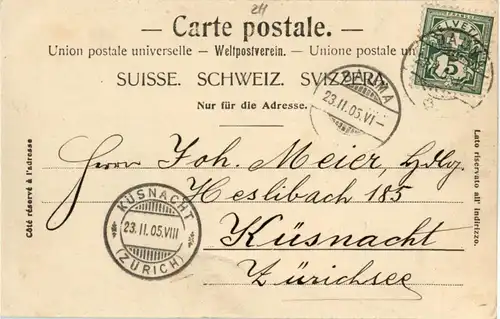 211
— Carte postale. —
Union postale universelle – Weltpostverein. – Unione postale un
SUISSE. SCHWEIZ. SVIZZERA.
Nur für die Adresse.
BAUMA
23.II.05.VI–
HELVETIA
5
Côté réservé à l'adresse
Lato riservato all' indirizzo.
Herrn Joh. Meier, Hdlg.
Heslibach 185
Küsnacht
Zürichsee
KÜSNACHT
23.II.05.VIII
(ZÜRICH)